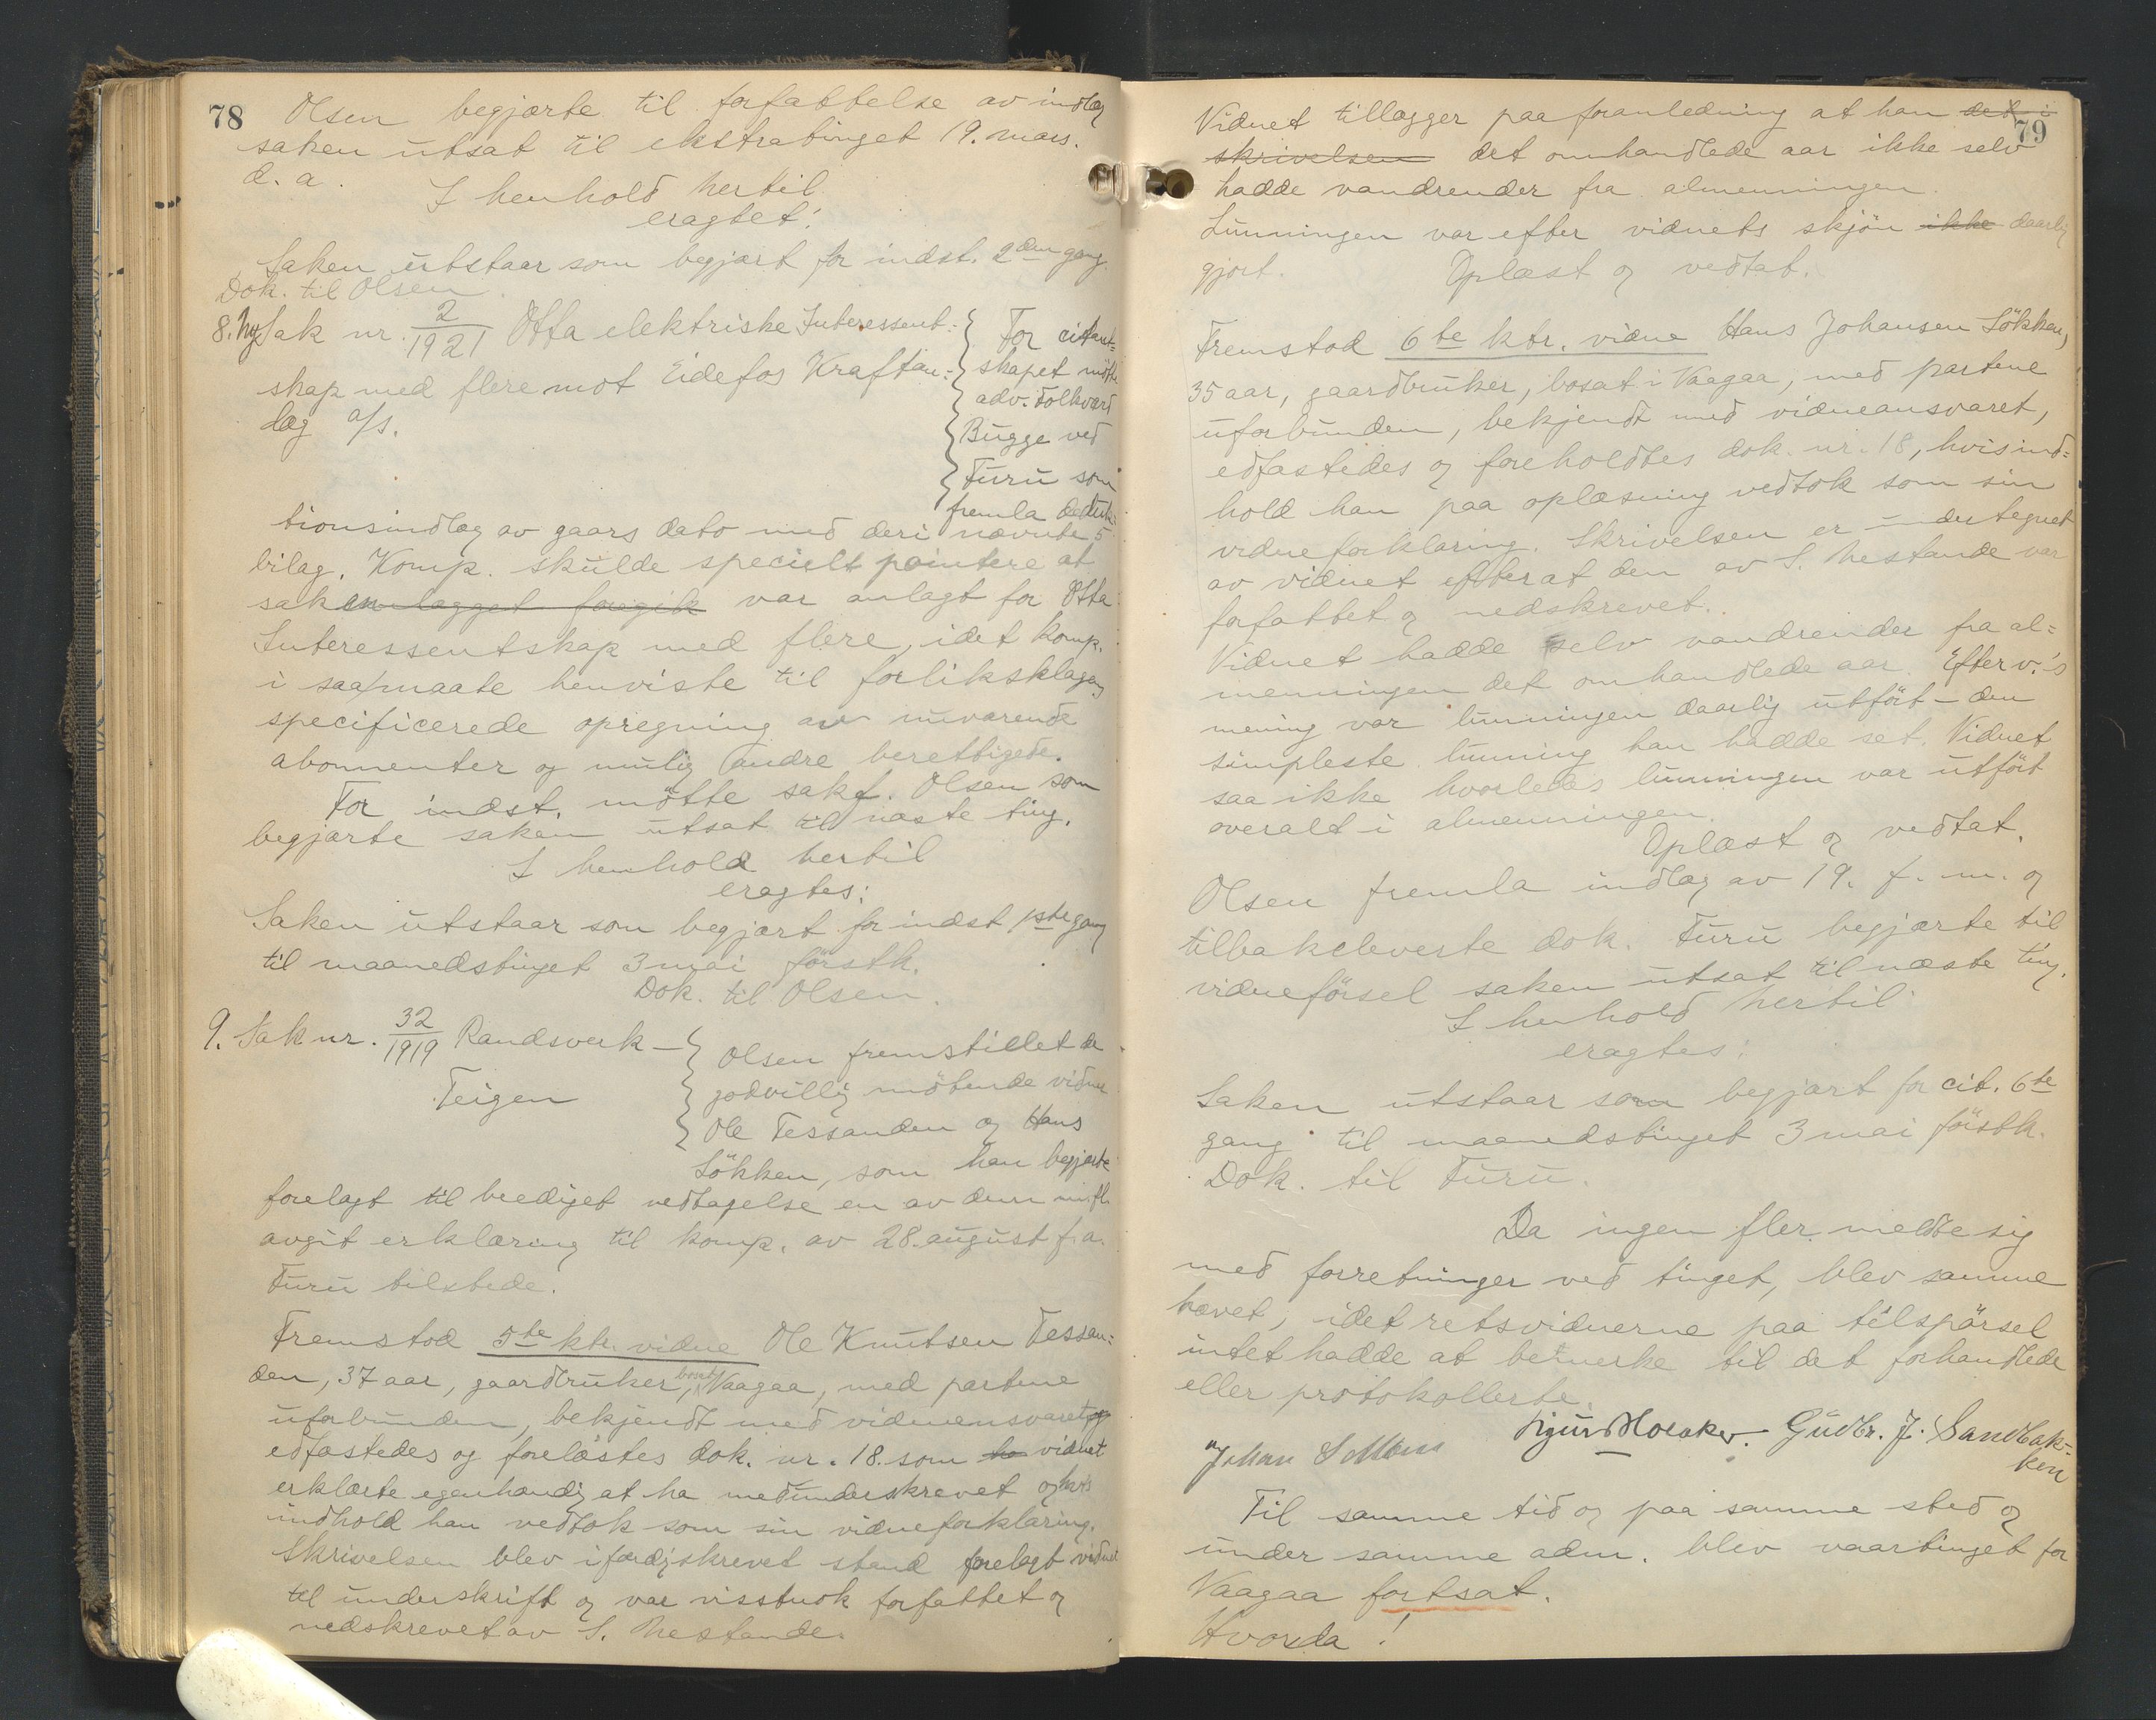 78
Olsen begjærte til forfattelse av indlæg
saken utsat til ekstratinget 19. mars.
d. a.
I henhold hertil
eragtet:
Saken utstaar som begjært for indst. 2den gang.
Dok. til Olsen.
8. Ny Sak nr. 2/1921 Otta elektriske Interessent-
skap med flere mot Eidefos Kraftan-
læg a/s.
For citant-
skapet mötte
adv. Folkvard
Bugge ved
Furu som
fremla deduk-
tionsindlæg av gaars dato med deri nævnte 5
bilag. Komp. skulde specielt pointere at
saken lagget foregik var anlagt for Otta
Interessentskap med flere, idet komp.
i saa maate henviste til forliksklagens
specificerede opregning av nuværende
abonnenter og mulig andre berettigede.
For indst. mötte sakf. Olsen som
begjærte saken utsat til næste ting.
I henhold hertil
eragtes:
Saken utstaar som begjært for indst 1ste gang
til maanedstinget 3 mai förstk.
Dok. til Olsen.
9. Sak nr. 32/1919 Randsverk –
Teigen
Olsen fremstillet de
godvillig mötende vidner
Ole Tessanden og Hans
Lökken, som han begjærte
forelagt til beediget vedtagelse en av dem m. fl.
avgit erklæring til komp. av 28. august f. a.
Furu tilstede.
Fremstod 5te ktr. vidne Ole Knutsen Tessan-
den, 37 aar, gaardbruker, bosat Vaagaa, med partene
uforbunden, bekjendt med vidneansvaret,
edfæstedes og forelæstes dok. nr. 18. som ha vidnet
erklærte egenhændig at ha medunderskrevet og hvis
indhold han vedtok som sin vidneforklaring.
Skrivelsen blev i færdigskrevet stand forelagt vidnet
til underskrift og var visstnok forfattet og
nedskrevet av S. Nestande.
79
Vidnet tillægger paa foranledning at han det i
skrivelsen det omhandlede aar ikke selv
hadde vandrender fra almenningen.
Lunningen var efter vidnets skjön ikke daarlig
gjort. Oplæst og vedtat.
Fremstod 6te ktr. vidne Hans Johansen Lökken,
35 aar, gaardbruker, bosat i Vaagaa, med partene
uforbunden, bekjendt med vidneansvaret,
edfæstedes og foreholdtes dok. nr. 18, hvis ind-
hold han paa oplæsning vedtok som sin
vidneforklaring. Skrivelsen er undertegnet
av vidnet efterat den av S. Nestande var
forfattet og nedskrevet.
Vidnet hadde selv vandrender fra al-
menningen det omhandlede aar. Efter v.'s
mening var lunningen daarlig utfört – den
simpleste lunning han hadde set. Vidnet
saa ikke hvorledes lunningen var utfört
overalt i almenningen.
Oplæst og vedtat.
Olsen fremla indlæg av 19. f. m. og
tilbakeleverte dok. Furu begjærte til
vidneförsel saken utsat til næste ting.
I henhold hertil
eragtes:
Saken utstaar som begjært for cit. 6te
gang til maanedstinget 3 mai förstk.
Dok. til Furu.
Da ingen fler meldte sig
med forretninger ved tinget, blev samme
hævet, idet retsvidnerne paa tilspörsel
intet hadde at bemerke til det forhandlede
eller protokollerte.
Johan
Gudbr. J. Sandbak-
ken
Til samme tid og paa samme sted og
under samme adm. blev vaartinget for
Vaagaa fortsat.
Hvorda!